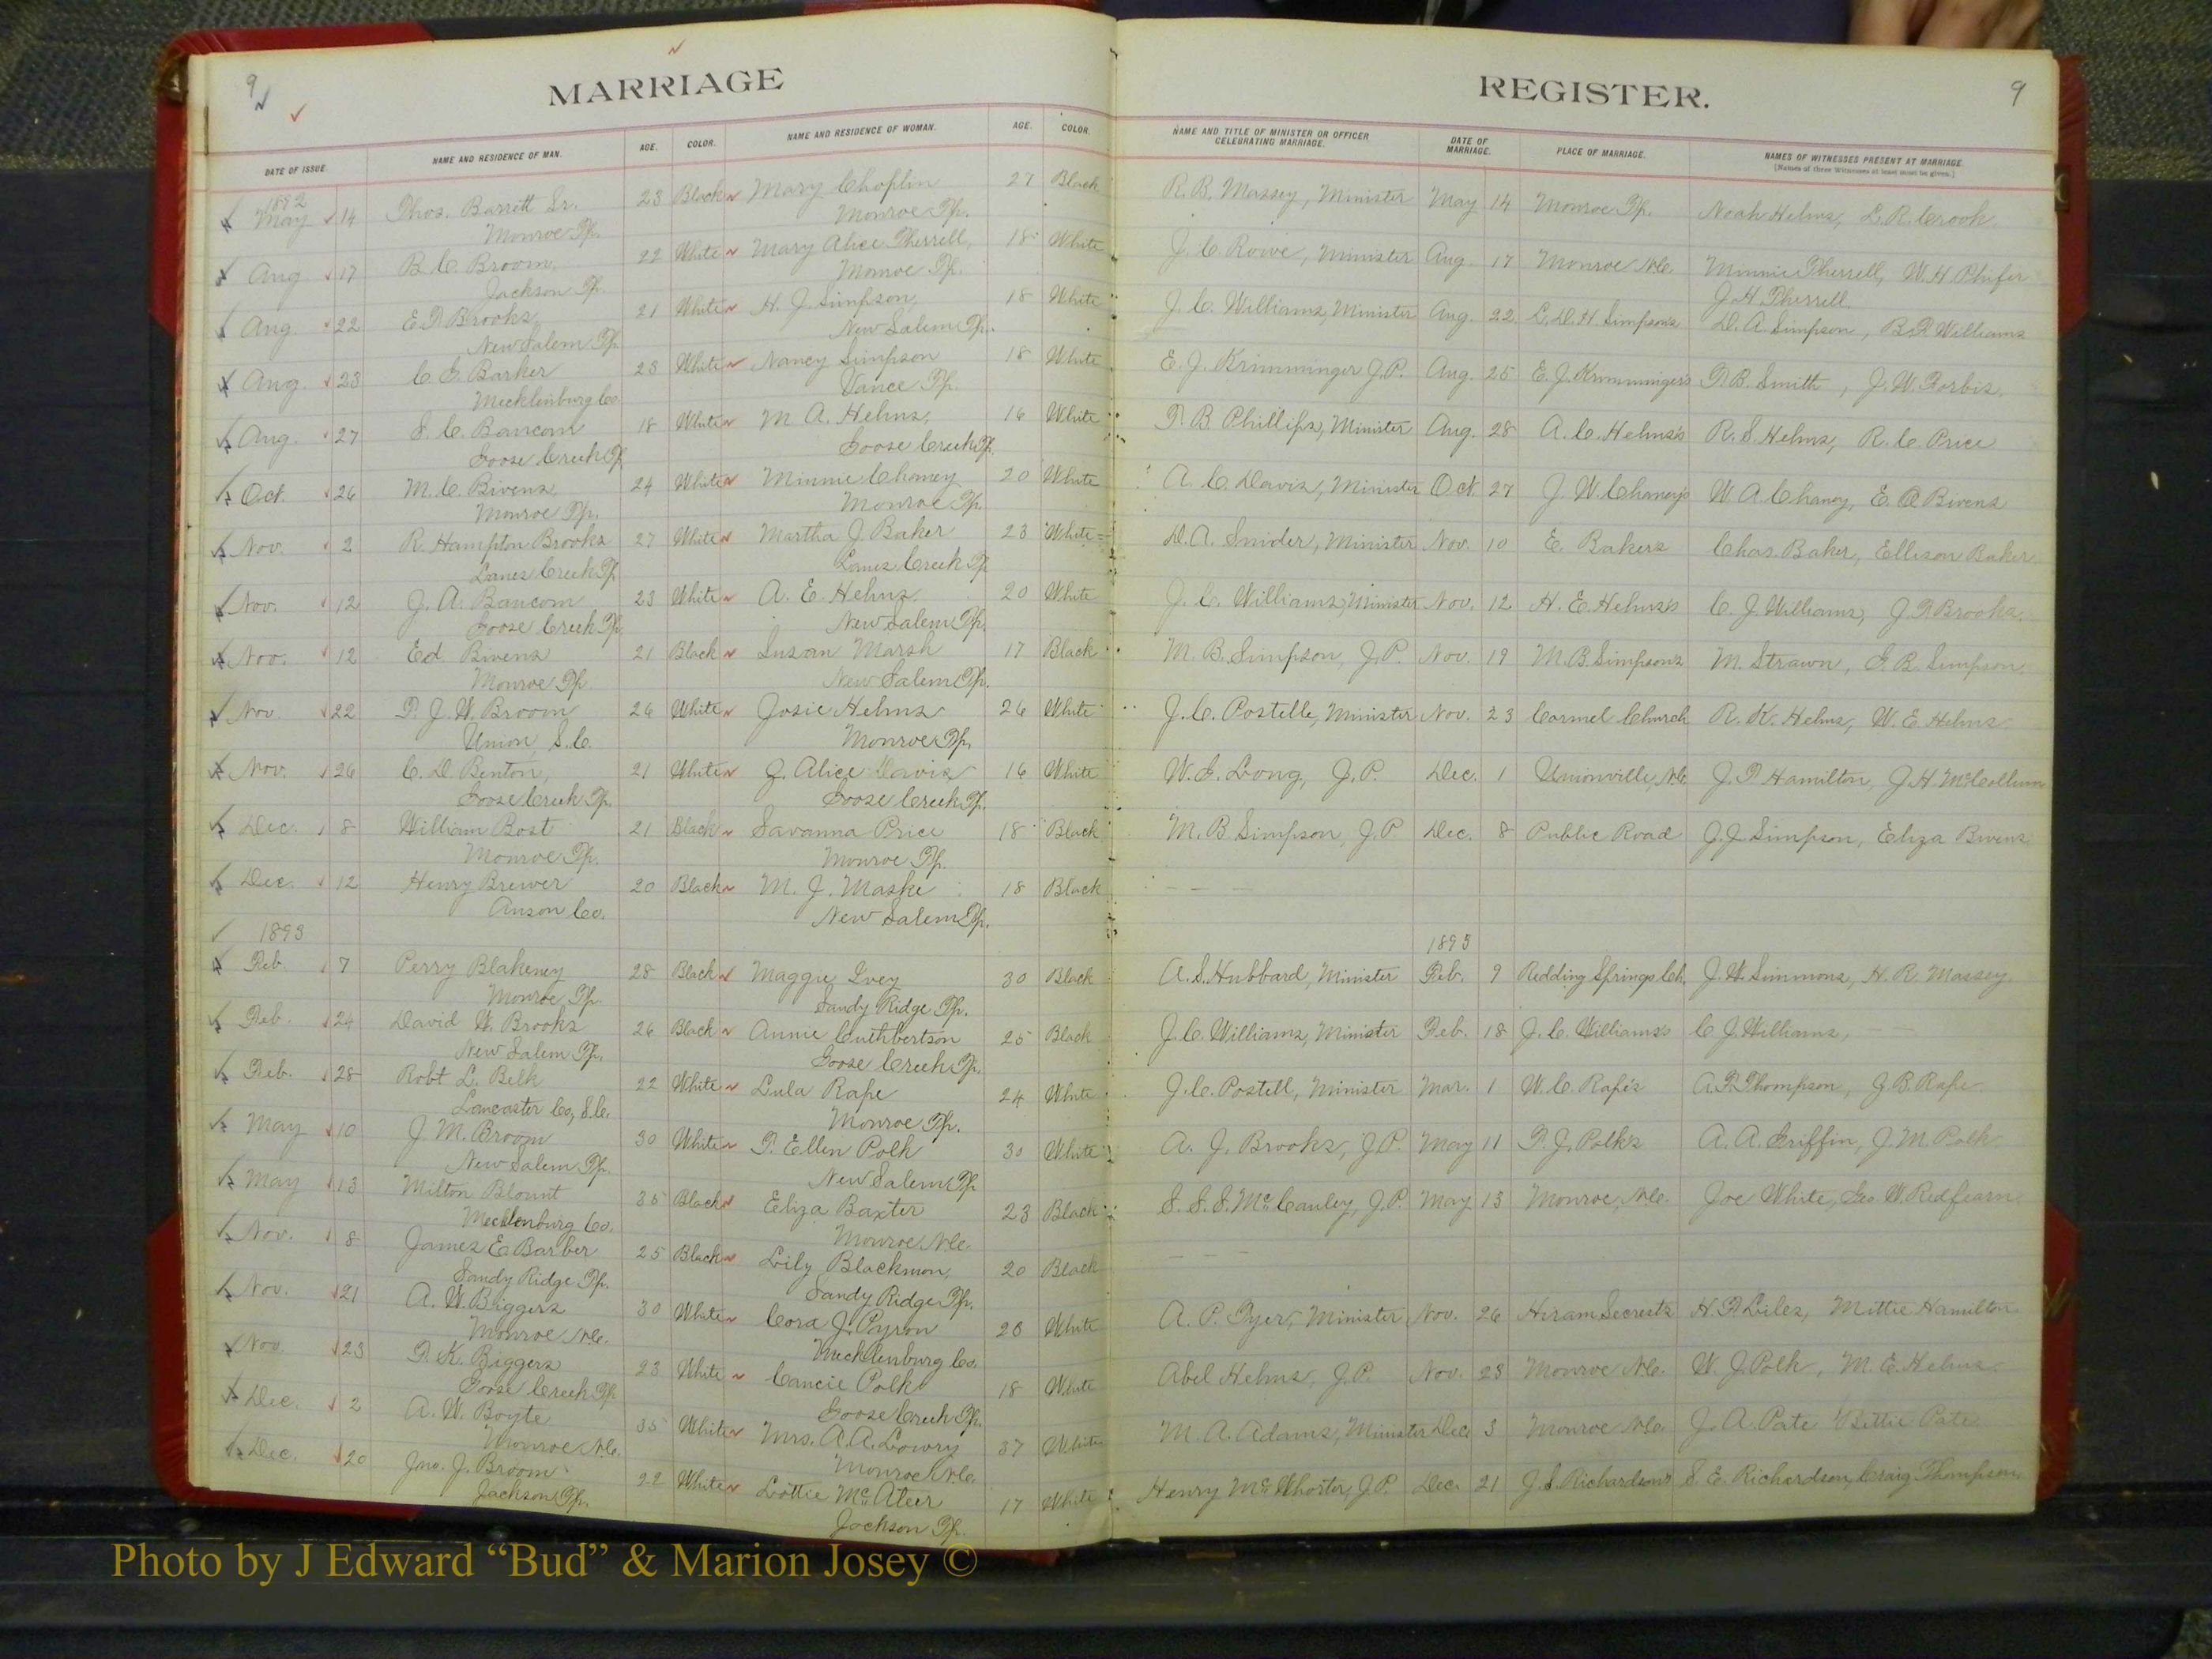 9
MARRIAGE
DATE OF ISSUE. NAME AND RESIDENCE OF MAN. AGE. COLOR. NAME AND RESIDENCE OF WOMAN. AGE. COLOR.
1892
May 14 Thos. Barrett Sr. 23 Black Mary Choplin 27 Black
Monroe Tp. Monroe Tp.
Aug 17 B. C. Broom, 22 White Mary Alice Therrell, 18 White
Jackson Tp. Monroe Tp.
Aug. 22 E. T. Brooks, 21 White H. J. Simpson, 18 White
New Salem Tp. New Salem Tp.
Aug. 23 C. G. Barker 23 White Nancy Simpson 18 White
Mecklenburg Co. Vance Tp.
Aug. 27 S. C. Baucom 18 White M. A. Helms, 16 White
Goose Creek Tp. Goose Creek Tp.
Oct. 26 M. C. Bivens 24 White Minnie Chaney 20 White
Monroe Tp. Monroe Tp.
Nov. 2 R. Hampton Brooks 27 White Martha J. Baker 23 White
Lanes Creek Tp. Lanes Creek Tp.
Nov. 12 J. A. Baucom 23 White A. E. Helms. 20 White
Goose Creek Tp. New Salem Tp.
Nov. 12 Ed. Bivens 21 Black Susan Marsh 17 Black
Monroe Tp. New Salem Tp.
Nov 22 T. J. W. Broom 26 White Josie Helms 26 White
Union, S.C. Monroe Tp.
Nov. 26 C. D. Benton, 21 White J. Alice Davis 16 White
Goose Creek Tp. Goose Creek Tp.
Dec. 8 William Bost 21 Black Savanna Price 18 Black
Monroe Tp. Monroe Tp.
Dec. 12 Henry Brewer 20 Black M. J. Maske 18 Black
Anson Co. New Salem Tp.
1893
Feb. 7 Perry Blakeney 28 Black Maggie Ivey 30 Black
Monroe Tp. Sandy Ridge Tp.
Feb. 24 David W. Brooks 26 Black Annie Cuthbertson 25 Black
New Salem Tp. Goose Creek Tp.
Feb. 28 Robt L. Belk 22 White Lula Rape 24 White
Lancaster Co, S.C. Monroe Tp.
May 10 J. M. Broom 30 White T. Ellen Polk 30 White
New Salem Tp. New Salem Tp.
May 13 Milton Blount 35 Black Eliza Baxter 23 Black
Mecklenburg Co. Monroe N.C.
Nov. 8 James E. Barber 25 Black Lily Blackmon, 20 Black
Sandy Ridge Tp. Sandy Ridge Tp.
Nov. 21 A. W. Biggers 30 White Cora J. Pyron 28 White
Monroe N.C. Mecklenburg Co.
Nov. 23 T. K. Biggers 23 White Cancie Polk 18 White
Goose Creek Tp. Goose Creek Tp.
Dec. 2 A. W. Boyte 35 White Mrs. A. A. Lowry 37 White
Monroe N.C. Monroe N.C.
Dec. 20 Jno. J. Broom 22 White Lottie McAteer 17 White
Jackson Tp. Jackson Tp.
REGISTER. 9
NAME AND TITLE OF MINISTER OR OFFICER CELEBRATING MARRIAGE. DATE OF MARRIAGE. PLACE OF MARRIAGE. NAMES OF WITNESSES PRESENT AT MARRIAGE
[Names of three Witnesses at least must be given.]
R. B. Massey, Minister May 14 Monroe Tp. Noah Helms, L. R. Crook.
J. C. Rowe, Minister Aug. 17 Monroe N.C. Minnie Therrell, W. H. Phifer
J. H. Therrell.
J. C. Williams, Minister Aug. 22 L. D. H. Simpson's D. A. Simpson, B. F. Williams
E. J. Krimminger J.P. Aug. 25 E. J. Krimminger's T. B. Smith, J. W. Forbis.
T. B. Phillips, Minister Aug. 28 A. C. Helms's R. S. Helms, R. C. Price
A. C. Davis, Minister Oct. 27 J. W. Chaney's W. A. Chaney, E. A. Bivens
D. A. Snider, Minister Nov. 10 E. Bakers Chas. Baker, Ellison Baker
J. C. Williams, Minister Nov. 12. H. E. Helms's C. J. Williams, J. T. Brooks.
M. B. Simpson, J.P. Nov. 19 M. B. Simpson's M. Strawn, G. B. Simpson.
J. C. Postelle, Minister Nov. 23 Carmel Church R. K. Helms, W. E. Helms.
W. G. Long, J.P. Dec. 1 Unionville, N.C. J. T. Hamilton, J. H. McCollum
M. B. Simpson, J.P Dec. 8 Public Road J. J. Simpson, Eliza Bivens
1893
A. S. Hubbard, Minister Feb. 9 Redding Springs Ch. J. W. Simmons, H. R. Massey.
J. C. Williams, Minister Feb. 18 J. C. Williams's C. J. Williams,
J. C. Postell, Minister Mar. 1 W. C. Rape's A. F. Thompson, J. B. Rape
A. J. Brooks, J.P. May 11 T. J. Polk's A. A. Griffin, J. M. Polk
S. S. S. McCauley, J.P. May 13 Monroe, N.C. Joe White, Geo. W. Redfearn.
A. P. Tyer, Minister Nov. 26 Hiram Secrests H. T. Liles, Mittie Hamilton
Abel Helms, J.P. Nov. 23 Monroe N.C. W. J. Polk, M. E. Helms
M. A. Adams, Minister Dec. 3 Monroe N.C. J. A. Pate Bettie Pate
Henry McWhorter, J.P. Dec. 21 J. S. Richardson's S. E. Richardson, Craig Thompson.
Photo by J Edward “Bud” & Marion Josey ©